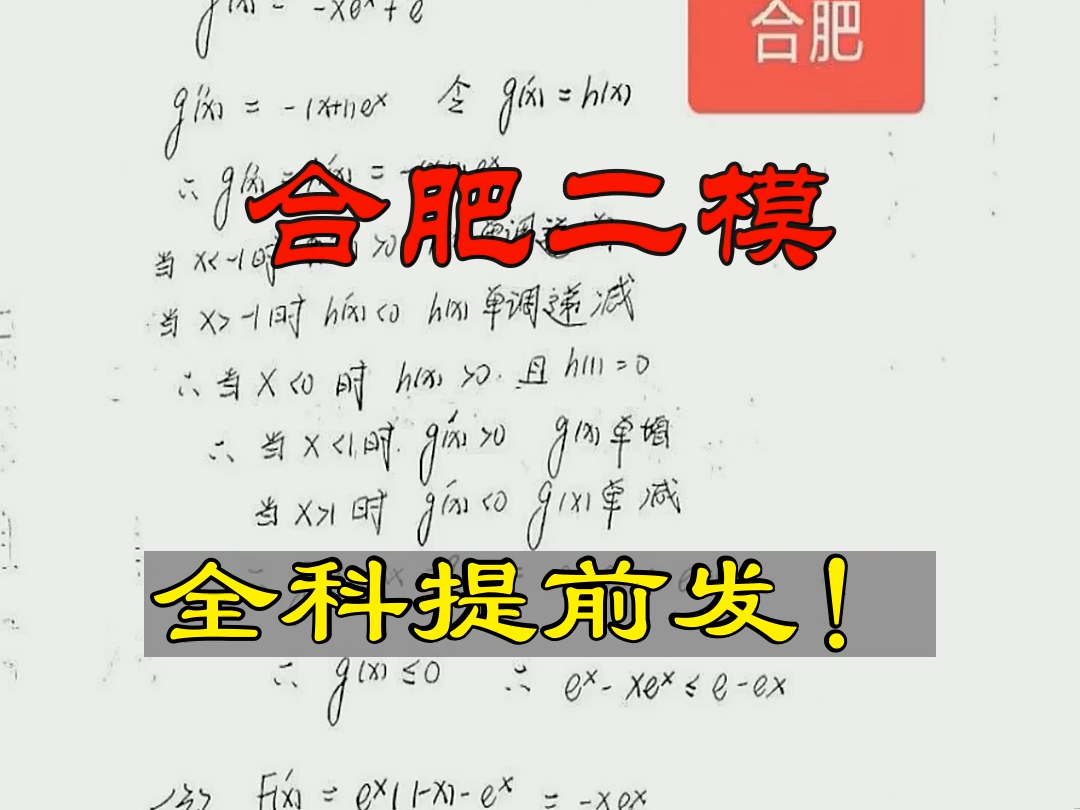 g'(x) = -xeˣ + e
合肥
g''(x) = -(x+1)eˣ 令 g'(x) = h(x)
合肥二模
当 x<-1时
当 x>-1时 h'(x)<0 h(x)单调递减
∴当 x<0 时 h(x)>0. 且 h(1)=0
∴ 当 x<1时. g'(x)>0 g(x)单增
当 x>1时 g'(x)<0 g(x)单减
全科提前发!
∴ g(x)≤0 ∴ eˣ-xeˣ≤e-ex
F'(x) = eˣ(1-x)-eˣ = -xeˣ